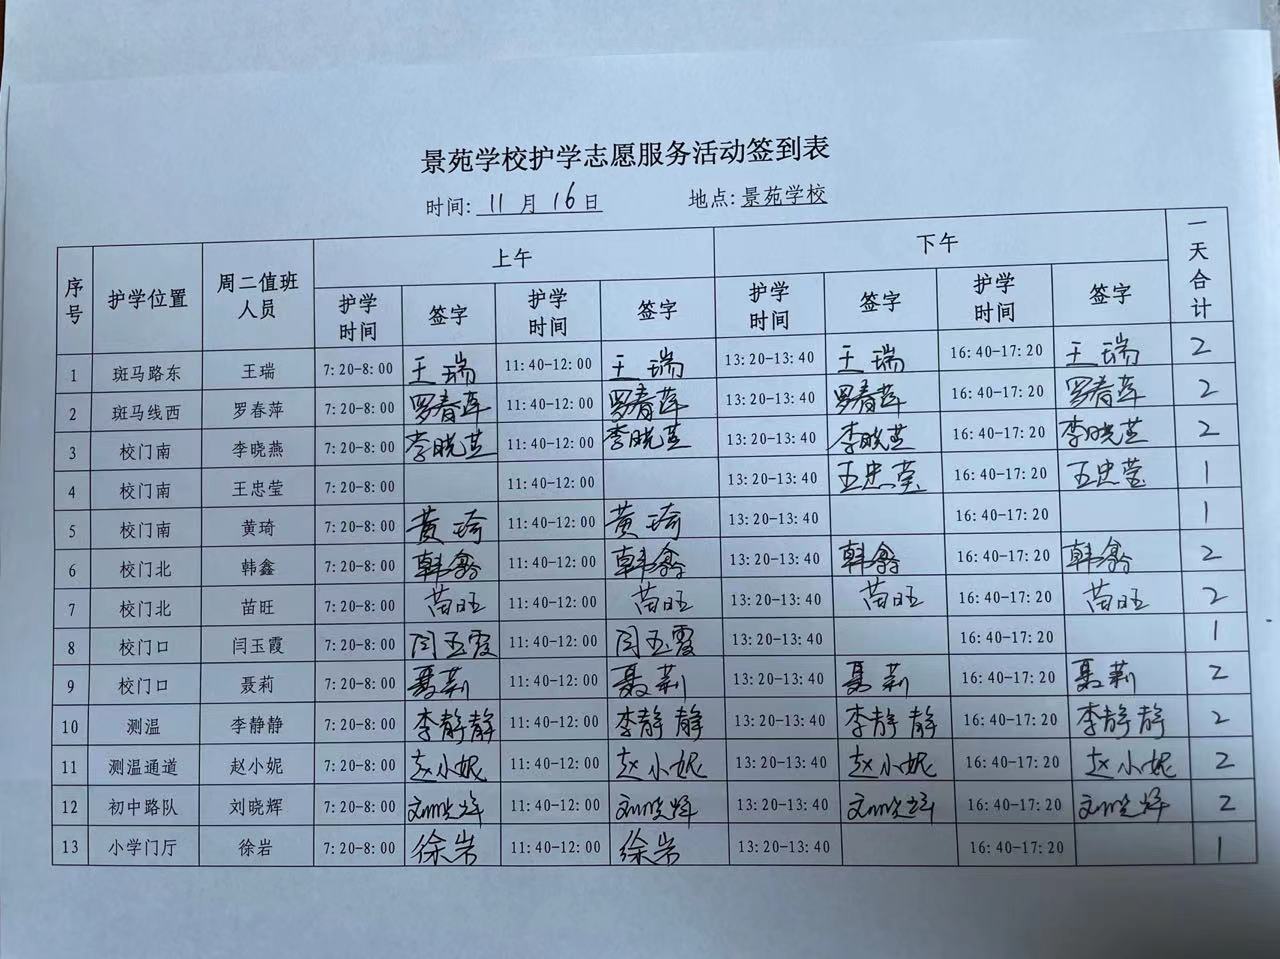 景苑学校护学志愿服务活动签到表
时间: 11月16日 地点: 景苑学校
序号 护学位置 周二值班人员 上午 下午 一天合计
护学时间 签字 护学时间 签字 护学时间 签字 护学时间 签字
1 斑马路东 王瑞 7:20-8:00 王瑞 11:40-12:00 王瑞 13:20-13:40 王瑞 16:40-17:20 王瑞 2
2 斑马线西 罗春萍 7:20-8:00 罗春萍 11:40-12:00 罗春萍 13:20-13:40 罗春萍 16:40-17:20 罗春萍 2
3 校门南 李晓燕 7:20-8:00 李晓燕 11:40-12:00 李晓燕 13:20-13:40 李晓燕 16:40-17:20 李晓燕 2
4 校门南 王忠莹 7:20-8:00 11:40-12:00 13:20-13:40 王忠莹 16:40-17:20 王忠莹 1
5 校门南 黄琦 7:20-8:00 黄琦 11:40-12:00 黄琦 13:20-13:40 16:40-17:20 1
6 校门北 韩鑫 7:20-8:00 韩鑫 11:40-12:00 韩鑫 13:20-13:40 韩鑫 16:40-17:20 韩鑫 2
7 校门北 苗旺 7:20-8:00 苗旺 11:40-12:00 苗旺 13:20-13:40 苗旺 16:40-17:20 苗旺 2
8 校门口 闫玉霞 7:20-8:00 闫玉霞 11:40-12:00 闫玉霞 13:20-13:40 16:40-17:20 1
9 校门口 聂莉 7:20-8:00 聂莉 11:40-12:00 聂莉 13:20-13:40 聂莉 16:40-17:20 聂莉 2
10 测温 李静静 7:20-8:00 李静静 11:40-12:00 李静静 13:20-13:40 李静静 16:40-17:20 李静静 2
11 测温通道 赵小妮 7:20-8:00 赵小妮 11:40-12:00 赵小妮 13:20-13:40 赵小妮 16:40-17:20 赵小妮 2
12 初中路队 刘晓辉 7:20-8:00 刘晓辉 11:40-12:00 刘晓辉 13:20-13:40 刘晓辉 16:40-17:20 刘晓辉 2
13 小学门厅 徐岩 7:20-8:00 徐岩 11:40-12:00 徐岩 13:20-13:40 16:40-17:20 1